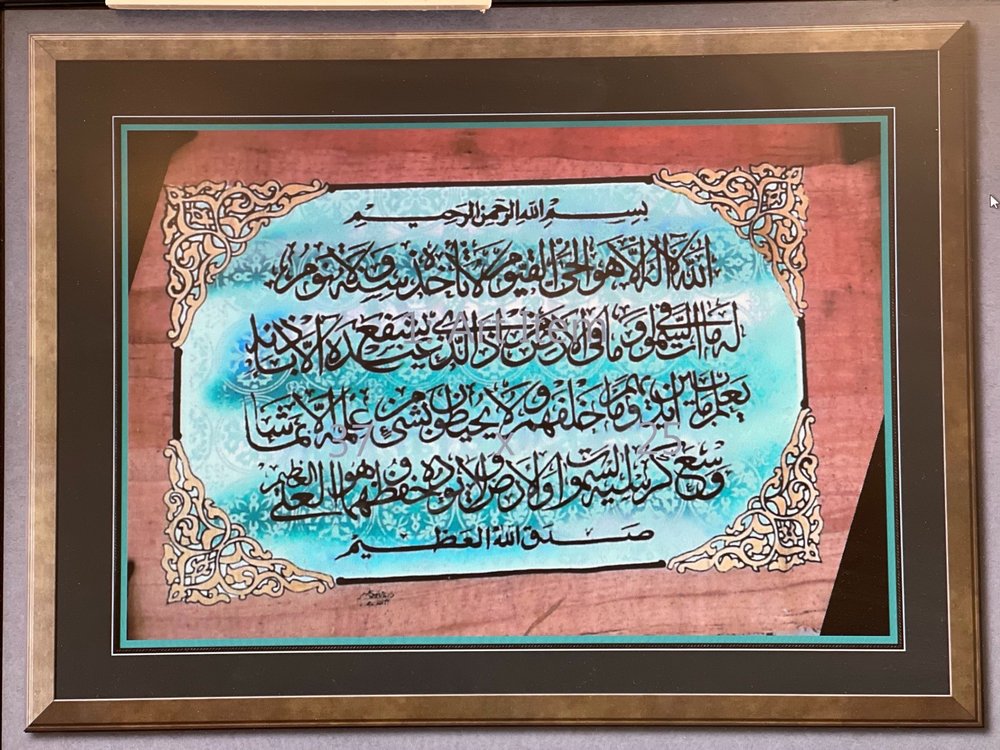 بسم الله الرحمن الرحيم
الله لا اله الا هو الحي القيوم لا تأخذه سنة ولا نوم
له ما في السموات وما في الارض من ذا الذي يشفع عنده الا باذنه
1 Art Item
يعلم ما بين ايديهم وما خلفهم ولا يحيطون بشئ من علمه الا بما شاء
37 x 25
وسع كرسيه السموات والارض ولا يوده حفظهما وهو العلي العظيم
صدق الله العظيم